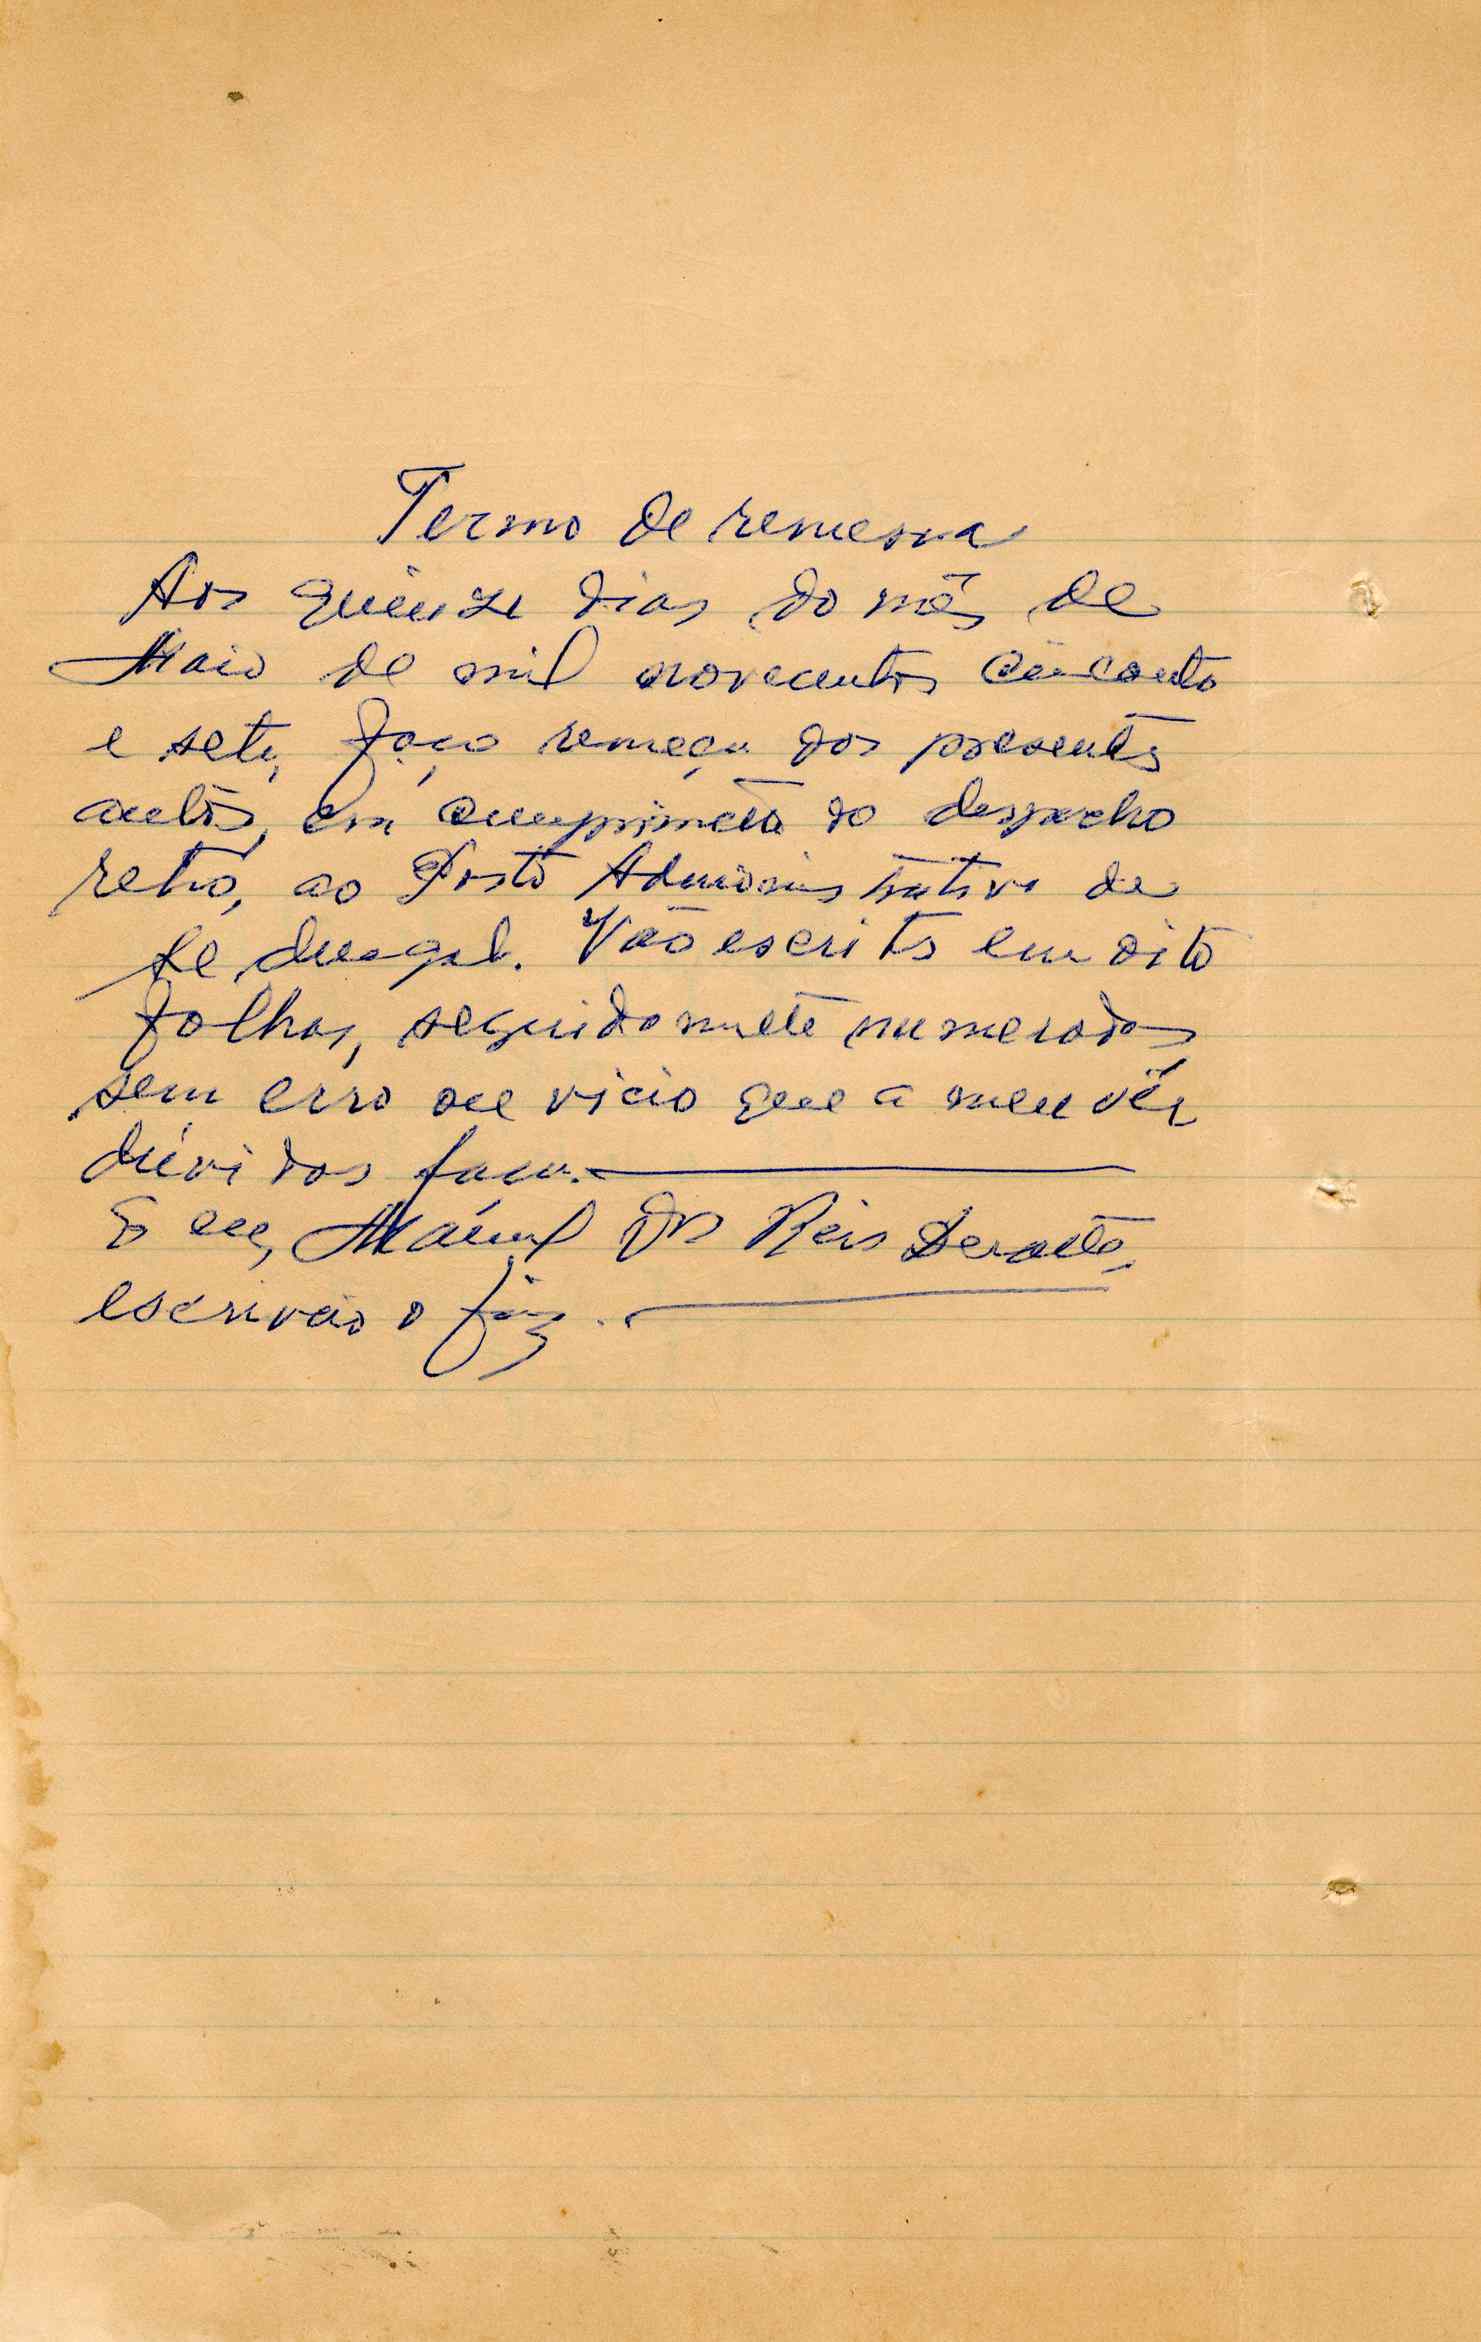 Termo de remessa
Aos quinze dias do mês de
Maio de mil novecentos cinconta
e sete, faço remeça dos presentes
autos, em cumprimeto do despacho
retro, ao Posto Administrativo de
Vão escritos em oito
folhas, seguidamete numerados
sem erro ou vicio que a meu vêr
dúvidas faça.
E eu, Manuel dos Reis
escrivão o fiz.